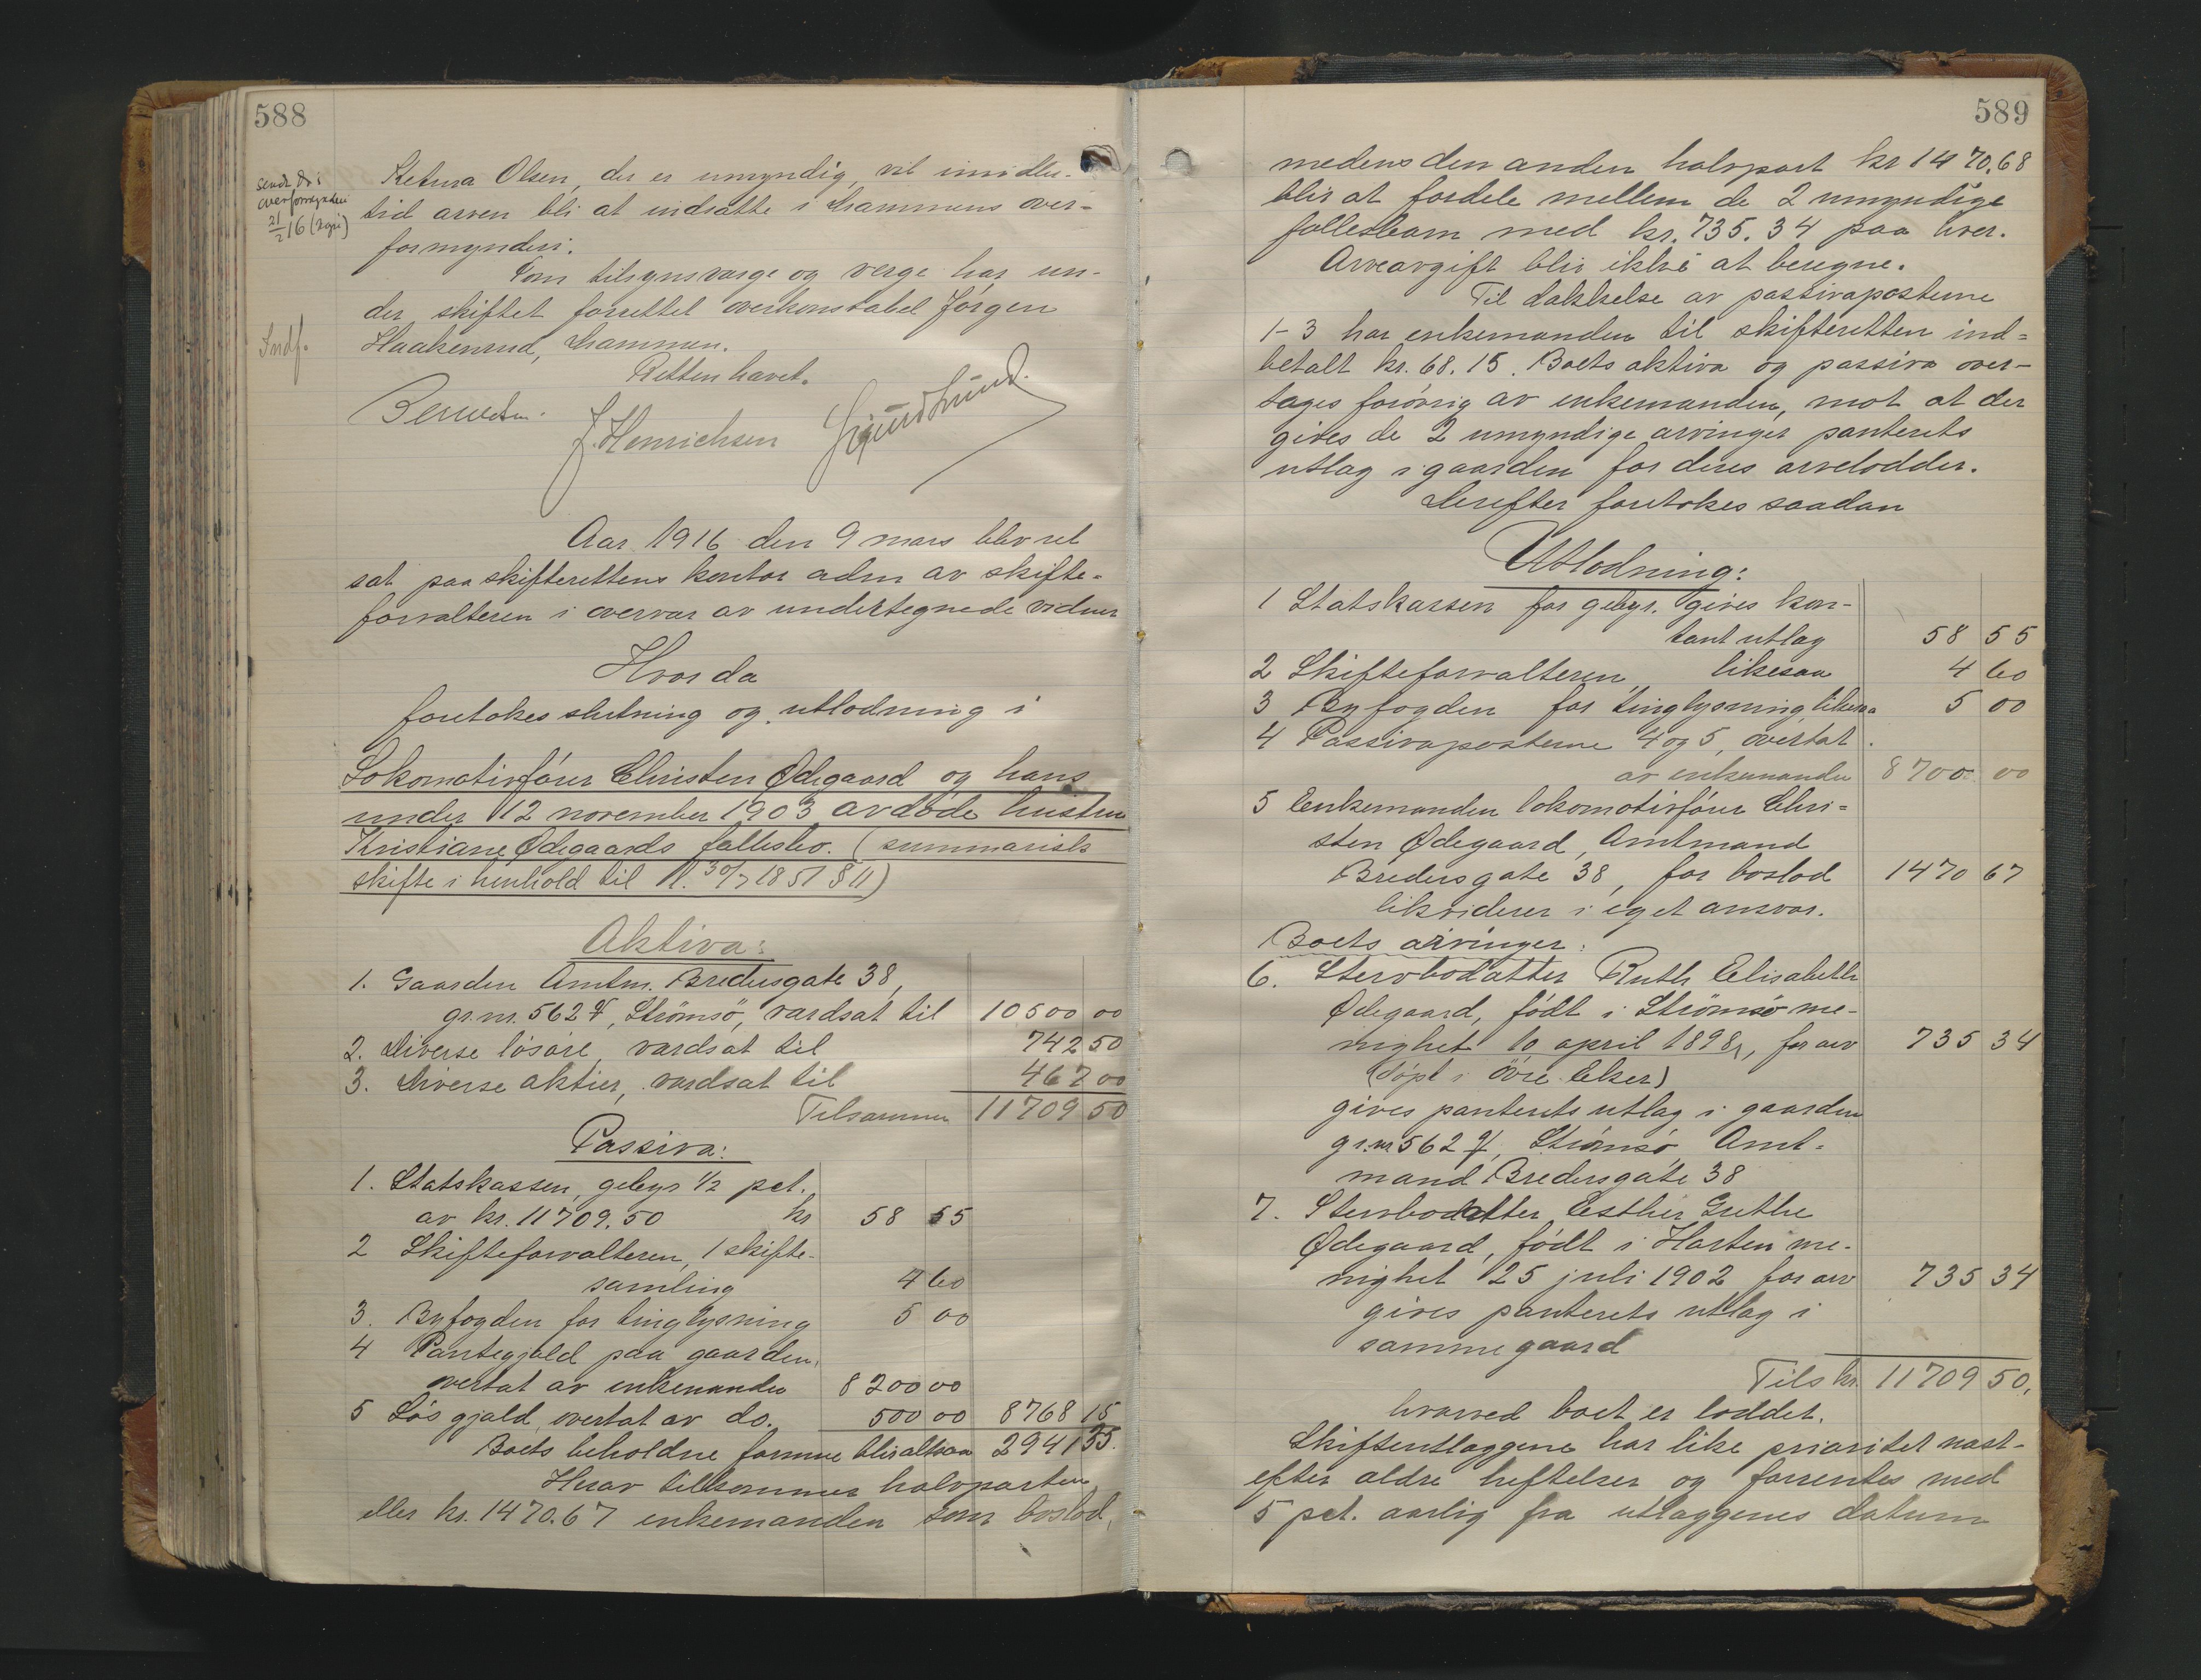 588
sendt dr. i
overformynderi
21/2 16 (2gji)
Ketura Olsen, der er umyndig, vil imidler-
tid arven bli at indsætte i Drammens over-
formynderi.
Som tilsynsværge og verge har un-
der skiftet forrettet overkonstabel Jörgen
Haakenrud, Drammen.
Indf.
Retten hævet.
J. Henrichsen
Sigurd Lund.
Aar 1916 den 9 mars blev ret
sat paa skifterettens kontor adm av skifte-
forvalteren i overvær av undertegnede vidner
Hvorda
foretokes slutning og utlodning i
Lokomotivförer Christen Ødegaard og hans
under 12 november 1903 avdöde hustru
Kristiane Ødegaards fællesbo. (summarisk
skifte i henhold til ll. 30/7 1851 § 11)
Aktiva:
1. Gaarden Amtm. Bredersgate 38,
gr.nr. 562 a, Strömsö, værdsat til 10500 00
2. Diverse lösöre, værdsat til 742 50
3. Diverse aktier, værdsat til 467 00
Tilsammen 11709 50
Passiva:
1. Statskassen, gebyr 1/2 pct.
av kr. 11709.50 kr 58 55
2 Skifteforvalteren, 1 skifte-
samling 4 60
3. Byfogden for tinglysning 5 00
4 Pantegjæld paa gaarden,
overtat av enkemanden 8200 00
5 Lös gjæld, overtat av do. 500 00 8768 15
Boets beholdne formue blir altsaa 2941 35.
Herav tilkommer halvparten
eller kr. 1470.67 enkemanden som boslod,
589
medens den anden halvpart kr 1470.68
blir at fordele mellem de 2 umyndige
fællesbarn med kr. 735.34 paa hver.
Arveavgift blir ikke at beregne.
Til dækkelse av passivaposterne
1-3 har enkemanden til skifteretten ind-
betalt kr. 68.15. Boets aktiva og passiva over-
tages forövrig av enkemanden, mot at der
gives de 2 umyndige arvinger panterets
utlæg i gaarden for deres arvelodder.
Derefter foretokes saadan
Utlodning:
1 Statskassen for gebyr. gives kon-
tant utlæg 58 55
2 Skifteforvalteren, likesaa 4 60
3 Byfogden for tinglysning likesaa 5 00
4 Passivaposterne 4 og 5, overtat
av enkemanden 8700 00
5 Enkemanden lokomotivförer Chri-
sten Ødegaard, Amtmand
Bredersgate 38, for boslod 1470 67
likviderer i eget ansvar.
Boets arvinger:
6. Stervbodatter Ruth Elisabeth
Ødegaard, födt i Strömsö me-
nighet 10 april 1898, for arv 735 34
(döpt i Övre Eker)
gives panterets utlæg i gaarden
gr.nr 562 a, Strömsö, Amt-
mand Bredersgate 38
7. Stervbodatter Esther Grethe
Ødegaard, födt i Horten me-
nighet 25 juli 1902 for arv 735 34
gives panterets utlæg i
samme gaard
Tils kr. 11709 50.
hvorved boet er loddet.
Skifteutlæggene har like prioritet næst-
efter ældre heftelser og forrentes med
5 pct. aarlig fra utlæggenes datum